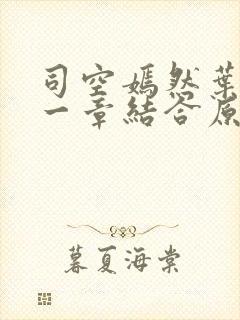 司空嫣然葉
一章結合原
暮夏海棠